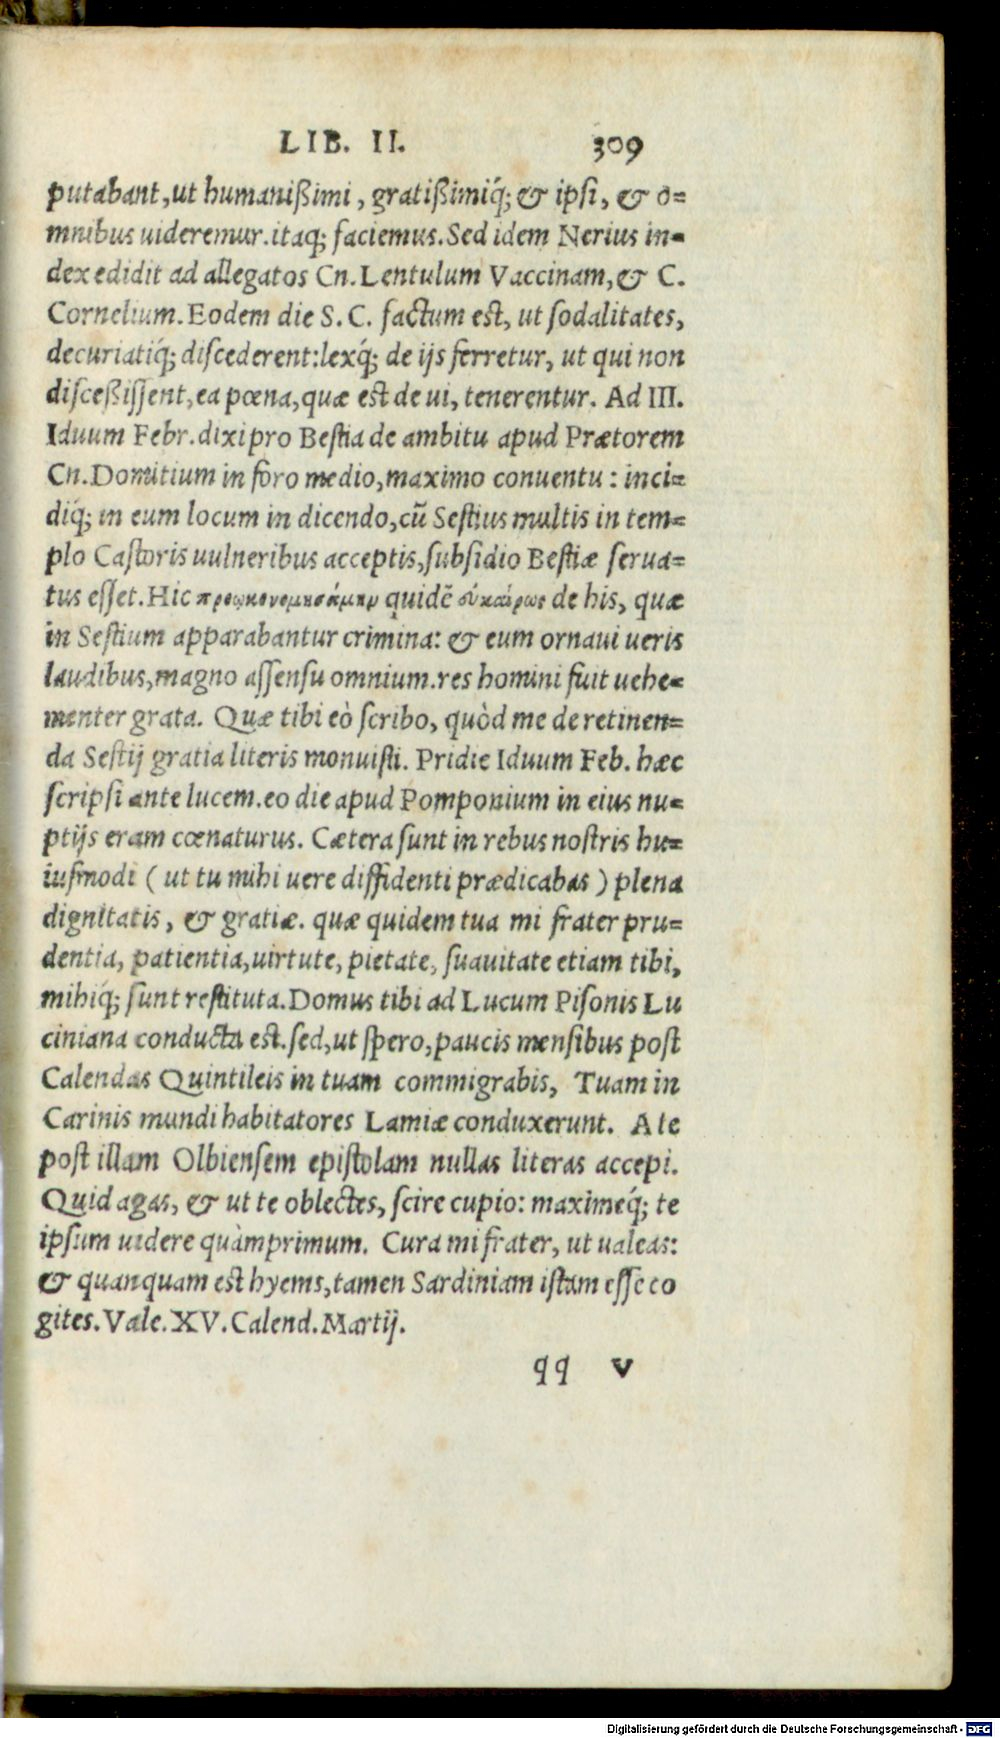 LIB. II. 309
putabant, ut humanißimi, gratißimiq́; & ipsi, & o=
mnibus uideremur. itaq; faciemus. Sed idem Nerius in=
dex edidit ad allegatos Cn. Lentulum Vaccinam, & C.
Cornelium. Eodem die S. C. factum est, ut sodalitates,
decuriatiq́; discederent: lexq́; de ijs ferretur, ut qui non
disceßissent, ea pœna, quæ est de ui, tenerentur. Ad III.
Iduum Febr. dixi pro Bestia de ambitu apud Prætorem
Cn. Domitium in foro medio, maximo conuentu: inci=
diq́; in eum locum in dicendo, cū Sestius multis in tem=
plo Castoris uulneribus acceptis, subsidio Bestiæ serua=
tus esset. Hic προῳκονομησάμην quidē οὐκαίρως de his, quæ
in Sestium apparabantur crimina: & eum ornaui ueris
laudibus, magno assensu omnium. res homini fuit uehe=
menter grata. Quæ tibi eò scribo, quòd me de retinen=
da Sestij gratia literis monuisti. Pridie Iduum Feb. hæc
scripsi ante lucem. eo die apud Pomponium in eius nu=
ptijs eram cœnaturus. Cætera sunt in rebus nostris hu=
iusmodi ( ut tu mihi uere diffidenti prædicabas ) plena
dignitatis, & gratiæ. quæ quidem tua mi frater pru=
dentia, patientia, uirtute, pietate, suauitate etiam tibi,
mihiq́; sunt restituta. Domus tibi ad Lucum Pisonis Lu
ciniana conducta est. sed, ut spero, paucis mensibus post
Calendas Quintileis in tuam commigrabis, Tuam in
Carinis mundi habitatores Lamiæ conduxerunt. A te
post illam Olbiensem epistolam nullas literas accepi.
Quid agas, & ut te oblectes, scire cupio: maximeq́; te
ipsum uidere quàmprimum. Cura mi frater, ut ualeas:
& quanquam est hyems, tamen Sardiniam istam esse co
gites. Vale. XV. Calend. Martij.
qq v
Digitalisierung gefördert durch die Deutsche Forschungsgemeinschaft - DFG